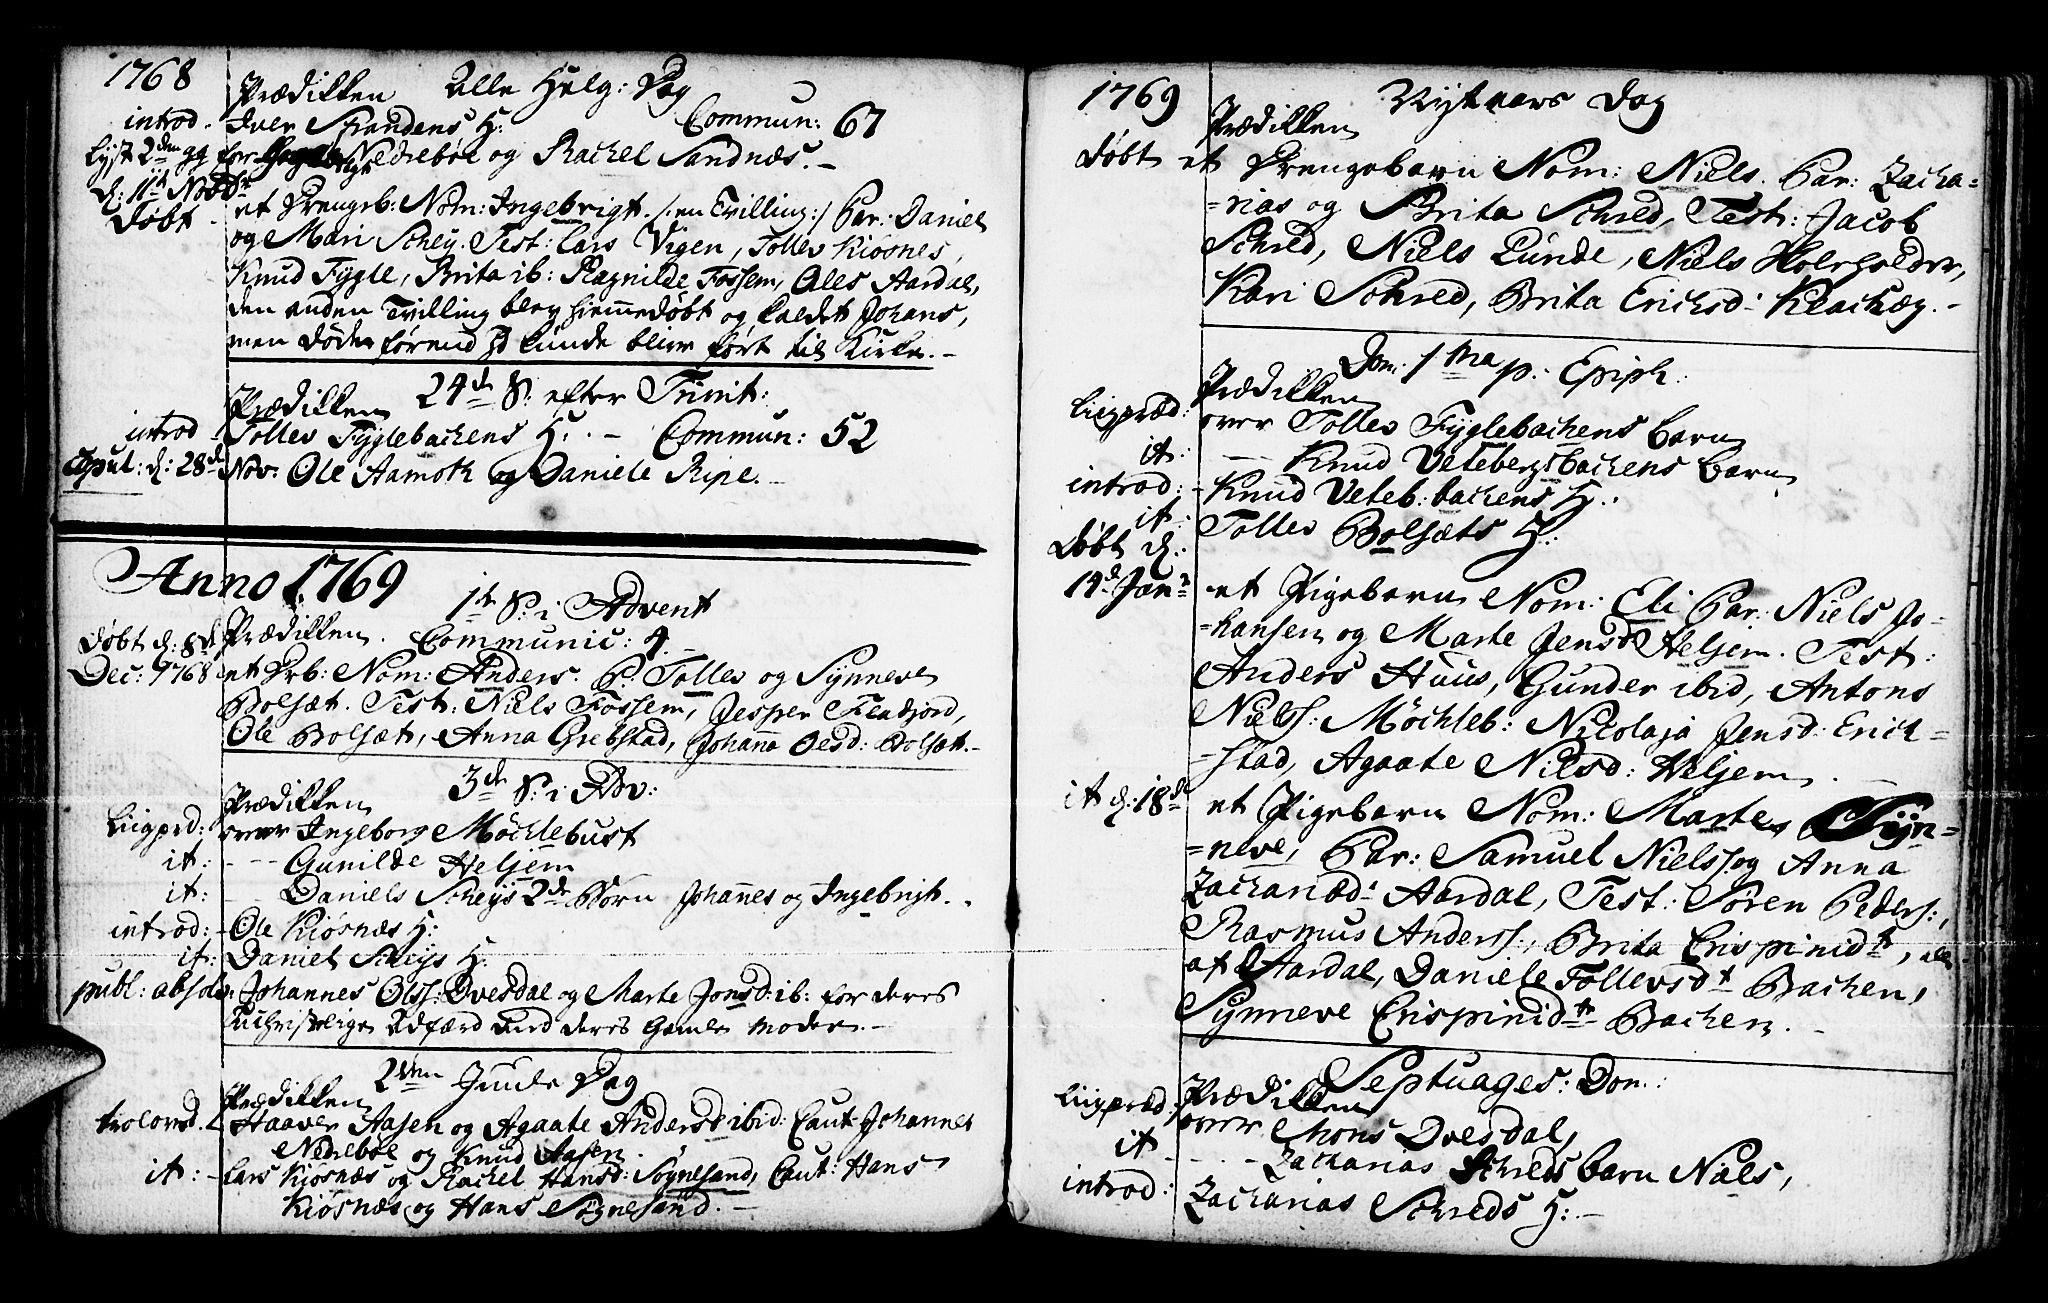 1768
Alle Helg: Dag
Prædikken
Commun: 67
introd. Iver Strandens H:
Lyst 2den gg for Nedrebøe og Rachel Sandnæs.
d: 11t Novbr
Døbt
et Drengeb: Nom: Ingebrigt /: en Tvilling :/ Par: Daniel
og Mari Schey. Test: Lars Vigen, Tollev Kiøsnes,
Knud Fygle, Brita ib: Ragnilde Fossem, Oles Aardal,
den anden Tvilling blev hiemmedøbt og kaldet Johans,
men døde førend d kunde blive ført til Kirke.
24de S: efter Trinit:
Prædikken
introd Tollev Fyglebachens H: - Commun: 52
Copul: d: 28de Nov: Ole Aamoth og Daniele Ripe.
Anno 1769
1te S: i Advent
Prædikken. Communic: 4.
Døbt d: 8de
Dec: 1768 et Drb: Nom: Anders. P: Tollev og Synneve
Bolsæt. Test: Niels Fossem, Jesper Flenjord,
Ole Bolsæt, Anna Grebstad, Johanna Olesd: Bolsæt.
3de S: i Adv:
Prædikken
Liigprd: over Ingeborg Möchlebust
it: - - Gunilde Heljem
it: Daniels Scheys 2de Børn Johannes og Ingebrigt.
introd: Ole Kiøsnæs H:
it: Daniel Scheys H:
publ: absolv: Johannes Olss: Dvesdal og Marte Jonsd: ib: for deres
Uchristelige Adfærd imod deres Gamle Moder.
2den Juule Dag
Prædikken
troloved. Haaver Aasen og Agaate Andersd ibid: Caut: Johannes
Nedrebøe og Knud Aasen.
it: Lars Kiøsnæs og Rachel Hansd: Sognesand, Caut: Hans
Kiøsnæs og Hans Sognesand.
1769
Nyt aars Dag
Prædikken
Døbt et Drengebarn Nom: Niels. Par: Zacha=
=rias og Brita Schred, Test: Jacob
Schred, Niels Lunde, Niels Holeholder,
Kari Schred, Brita Erichsd: Klachæg.
Dom: 1ma p: Epiph:
Prædikken
Liigpræd: over Tollev Fyglebachens Barn
it: - - Knud Vetebergsbachens Barn
introd: Knud Veteb: bachens H:
it: Tollev Bolsæts H:
Døbt d:
14de Janr et Pigebarn Nom: Eli Par: Niels Jo-
=hansen og Marte Jensd Heljem. Test:
Anders Huus, Gunder ibid, Antons
Nielss: Möchleb: Nicolaja Jensd: Erich=
=stad, Agaate Nilsd: Heljem.
it d: 18de et Pigebarn Nom: Marte, Syn=
=neve, Par: Samuel Nielss: og Anna
Zachariæd: Aardal, Test: Søren Peders:,
Rasmus Anderss:, Brita Crispinidtr, alle
af Aardal, Daniele Tollevsdt Bachen,
Synneve Crispinidtr Bachen.
Septuages: Dom:
Prædikken
Liigpræd: over Mons Dvesdal,
it - - - Zacharias Schreds barn Niels,
introd: Zacharias Schreds H: